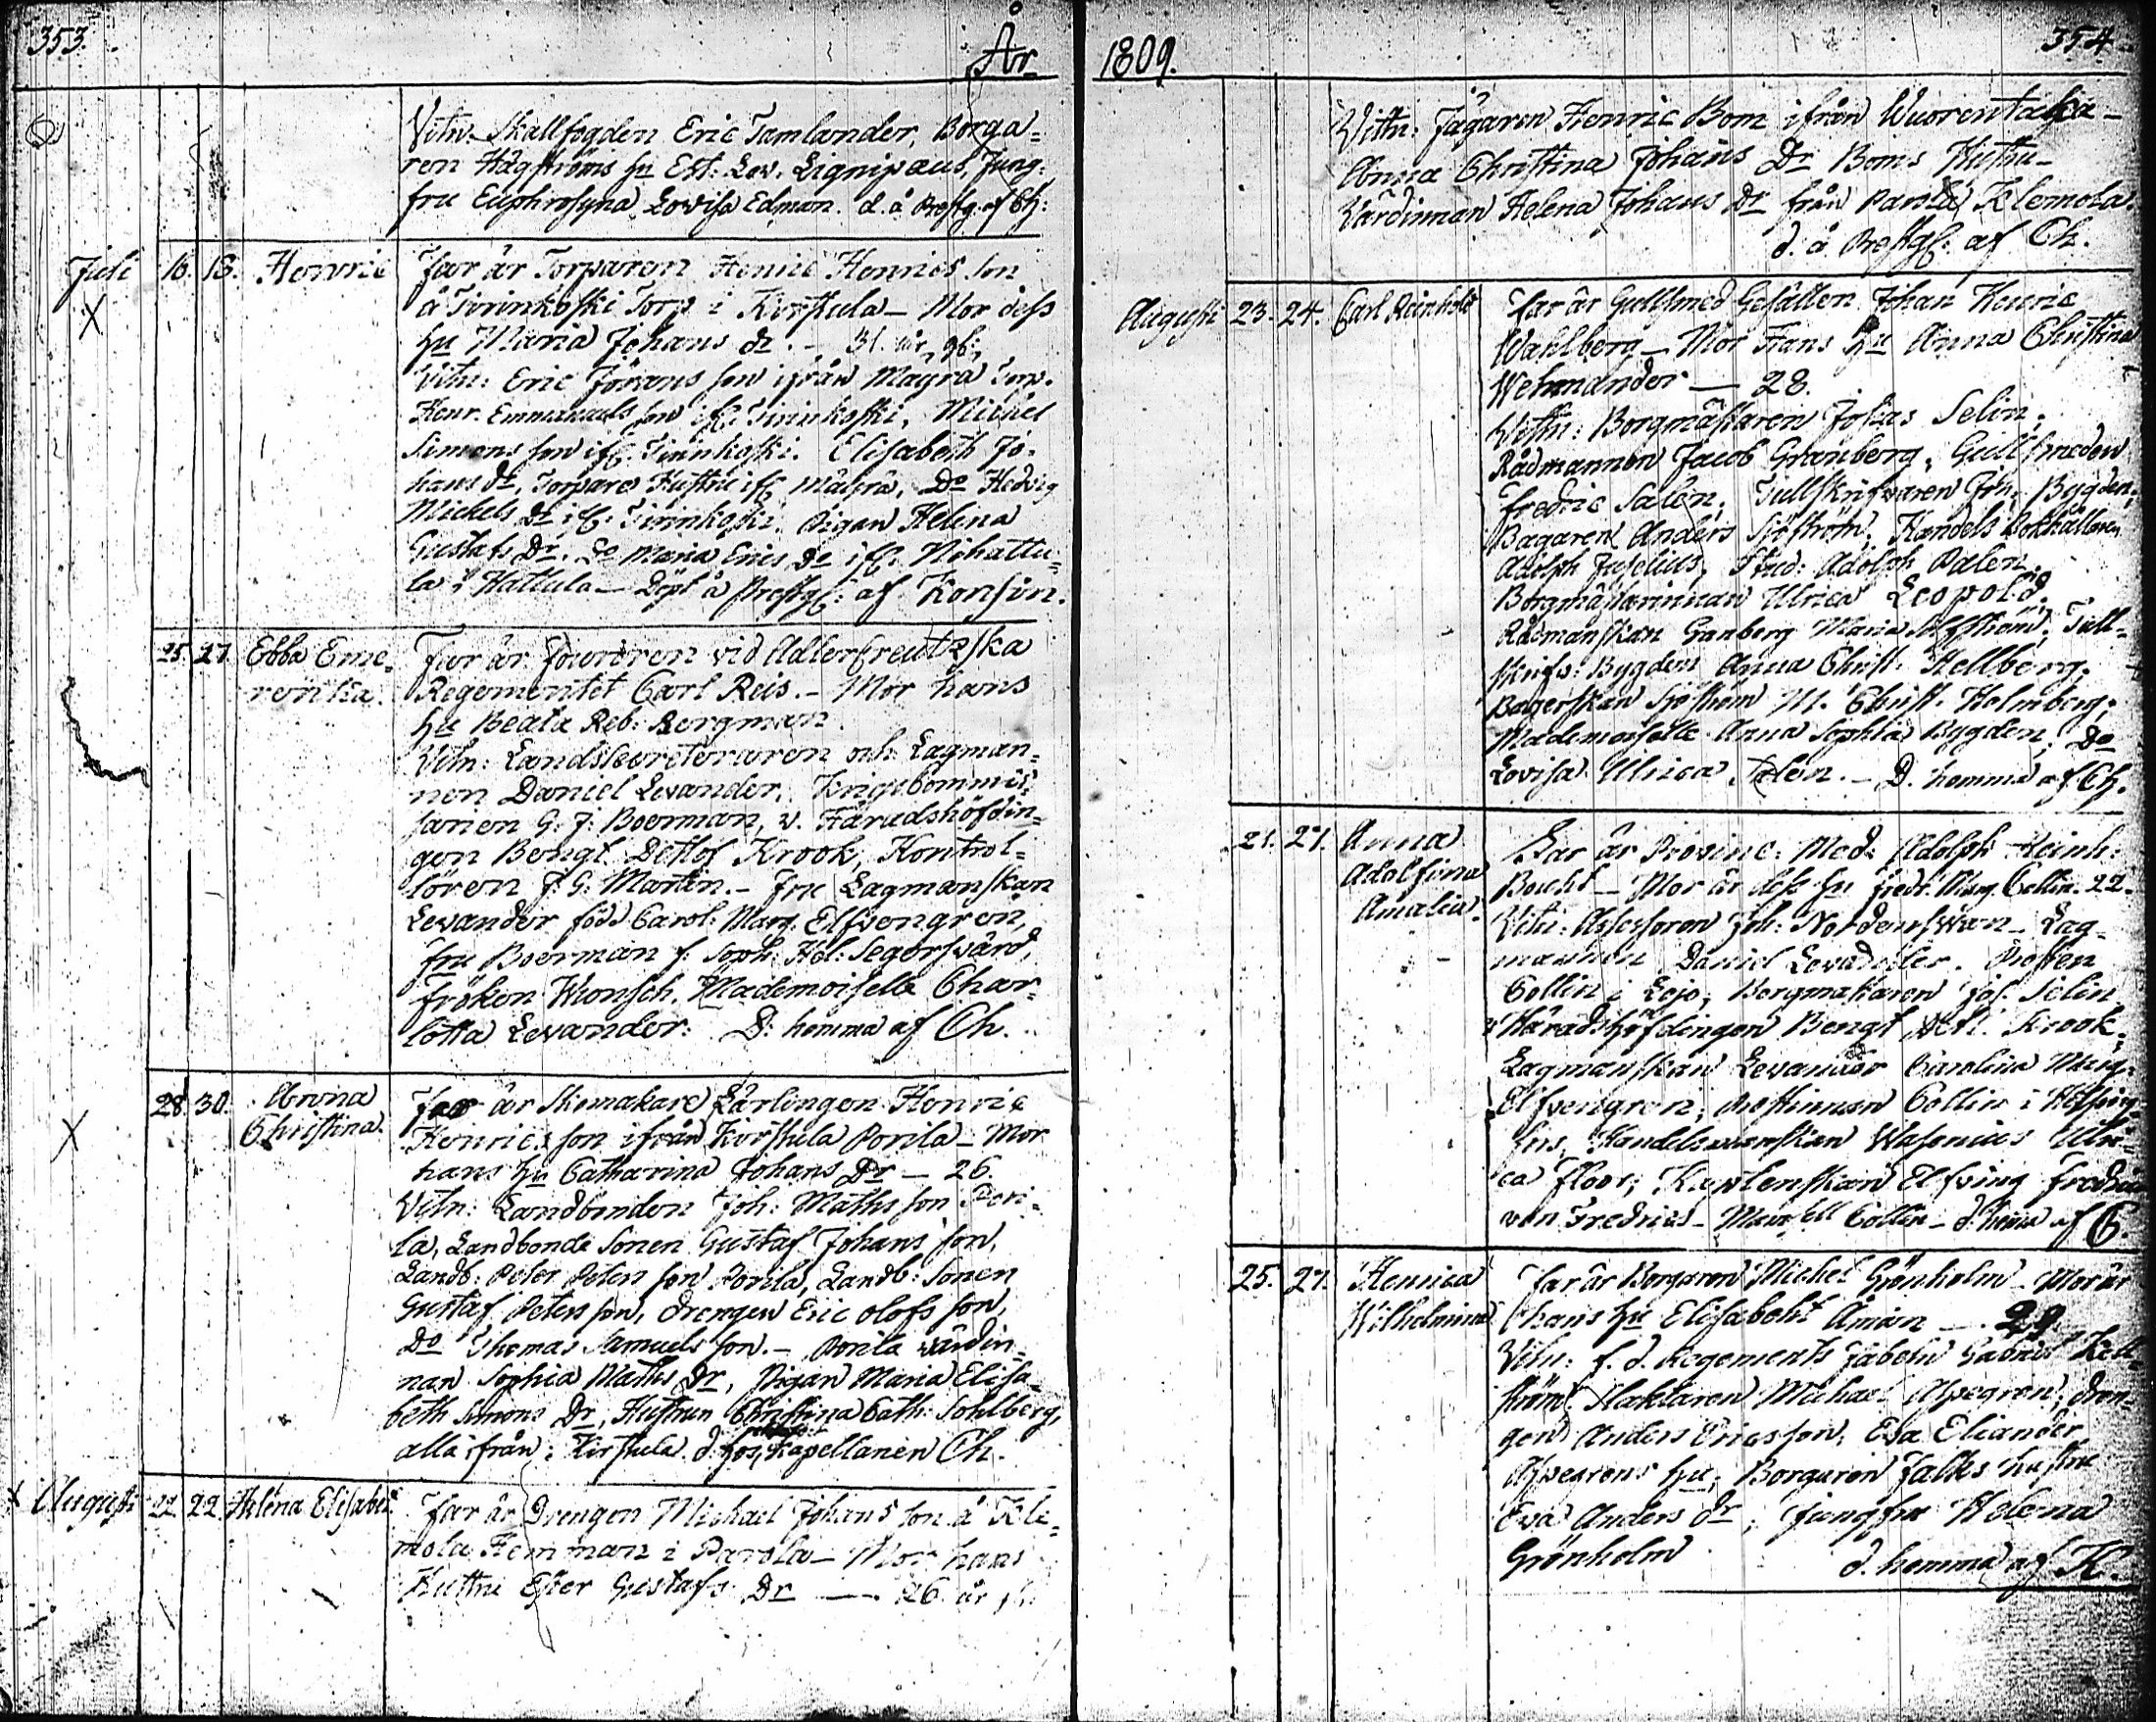 353.
År
Vitn. Skallfogden Eric Tamlander, Borga=
ren Hägströms hu Est: Lov. Lignipæus, Jung:
fru Euphrosyna Lovisa Edman. d. å Prestg. af Ch:
Juli 16. 18. Henric
Far är Torparen Henric Henrics son
å Tirinkoski Torp i Kirstula – Mor dess
hu Maria Johans dr. – 31. år gl:
Vitn: Eric Jörans son ifrån Magra Torp.
Henr. Emmanuels son ifr. Tirinkoski, Michel
Simons son ifr. Tirinkoski. Elisabeth Jo-
hans dr, Torpare Hustru ifr Mäkrä, Do Hedvig
Mickels Dr ifr: Tirinkoski. Pigan Helena
Gustafs Dr. Do Maria Erics Dr ifr: Nihattu=
la i Hattula – Döpt å Prestg: af Konsin.
25. 27. Ebba Eme=
rentia.
Far är Fouriren vid Adlercreutzska
Regementet Carl Reis. – Mor hans
hu Beata Reb: Bergman
Vitn: Landssecreteraren och Lagman=
nen Daniel Levander, Krigscommis=
sarien G. J: Boerman, v. Häradshöfdin=
gen Bengt Detlof Krook, Kontrol=
lören J: G: Martin. – Fru Lagmanskan
Levander född Carol: Marg. Elfvengren,
fru Boerman f: Soph: Hel: Segersvärd,
fröken Wunsch. Mademoiselle Char=
lotta Levander: D: hemma af Ch.
28. 30. Anna
Christina.
Far är Skomakare Lärlingen Henric
Henrics son ifrån Kirstula Porila – Mor
hans hu Catharina Johans Dr – 26.
Vitn: Landbonden Joh: Maths son Pori=
la, Landbonde Sonen Gustaf Johans son,
Landb: Peter Peters son Porila, Landb: Sonen
Gustaf Peters son, drengen Eric Olofs son,
Do Thomas Samuels son. – Porila värdin=
nan Sophia Maths Dr, Pigan Maria Elisa=
beth Simons Dr, Hustrun Christina Cath: Sohlberg,
alla från: Kirstula. d. hos Kapellanen Ch.
Augusti 22. 22. Helena Elisabet
Far är Drengen Michael Johans son å Kle=
mola Hemman i Parola – Mor hans
Hustru Ester Gustafs Dr —. 26 år gl:
1809.
354
Vittn: Jägaren Henric Bom ifrån Wuorentaka –
Anna Christina Johans Dr Boms Hustru –
Värdinnan Helena Johans Dr från Parola Klemola.
d. å Prestg: af Ch.
Augusti 23. 24. Carl Reinhold
Far är Gullsmed Gesällen Johan Henric
Wahlberg – Mor Hans hu Anna Christina
Wehmander — 28.
Vittn: Borgmästaren Johas Selin;
Rådmannen Jacob Granberg, Gullsmeden
Fredric Salen; Tullskrifvaren Joh: Bygden,
Bagaren Anders Sjöström, Handels Bokhållaren
Adolph Juselius, Stud: Adolph Palen.
Borgmästarinnan Ulrica Leopold.
Rådmanskan Granberg Maria; Tull=
skrifv: Bygden Anna Christ: Hellberg;
Bagerskan Sjöström M. Christ. Holmberg;
Mademoiselle Anna Sophia Bygden; Do
Lovisa Ulrica Palen. – D. hemma af Ch.
21. 27. Anna
Adolfina
Amalia.
Far är Provinc: Med: Adolph Reinh:
Bucht – Mor är dess hu Fredr. Marg. Collin. 22.
Vitn: Assessoren Joh: Nordenswan. Lag-
mannen Daniel Levander. Prosten
Collin i Lojo; Borgmästaren Joh. Selin
v: Häradshöfdingen Bengt Detl. Krook;
Lagmanskan Levander Carolina Marg:
Elfvengren; Prostinnan Collin i Helsing=
fors, Handelsmanskan Wasenius Ulri=
ca Floor; Kaptenskan Elfving Fredrica
von Fredrics – Mamsell Collin – d. hema af C.
25. 27. Henrica
Wilhelmina
Far är Borgaren Michel Grönholm – Mor är
hans hu Elisabeht Amian —. 29
Vitn: f. d. Regements Gabriel Kell=
ström Slaktaren Michael Aspegren, dren=
gen Anders Ericsson, Eva Eliander,
Aspegrens hu, Borgaren Falks hustru
Eva Anders dr; Jungfru Helena
Grönholm d. hemma af K.